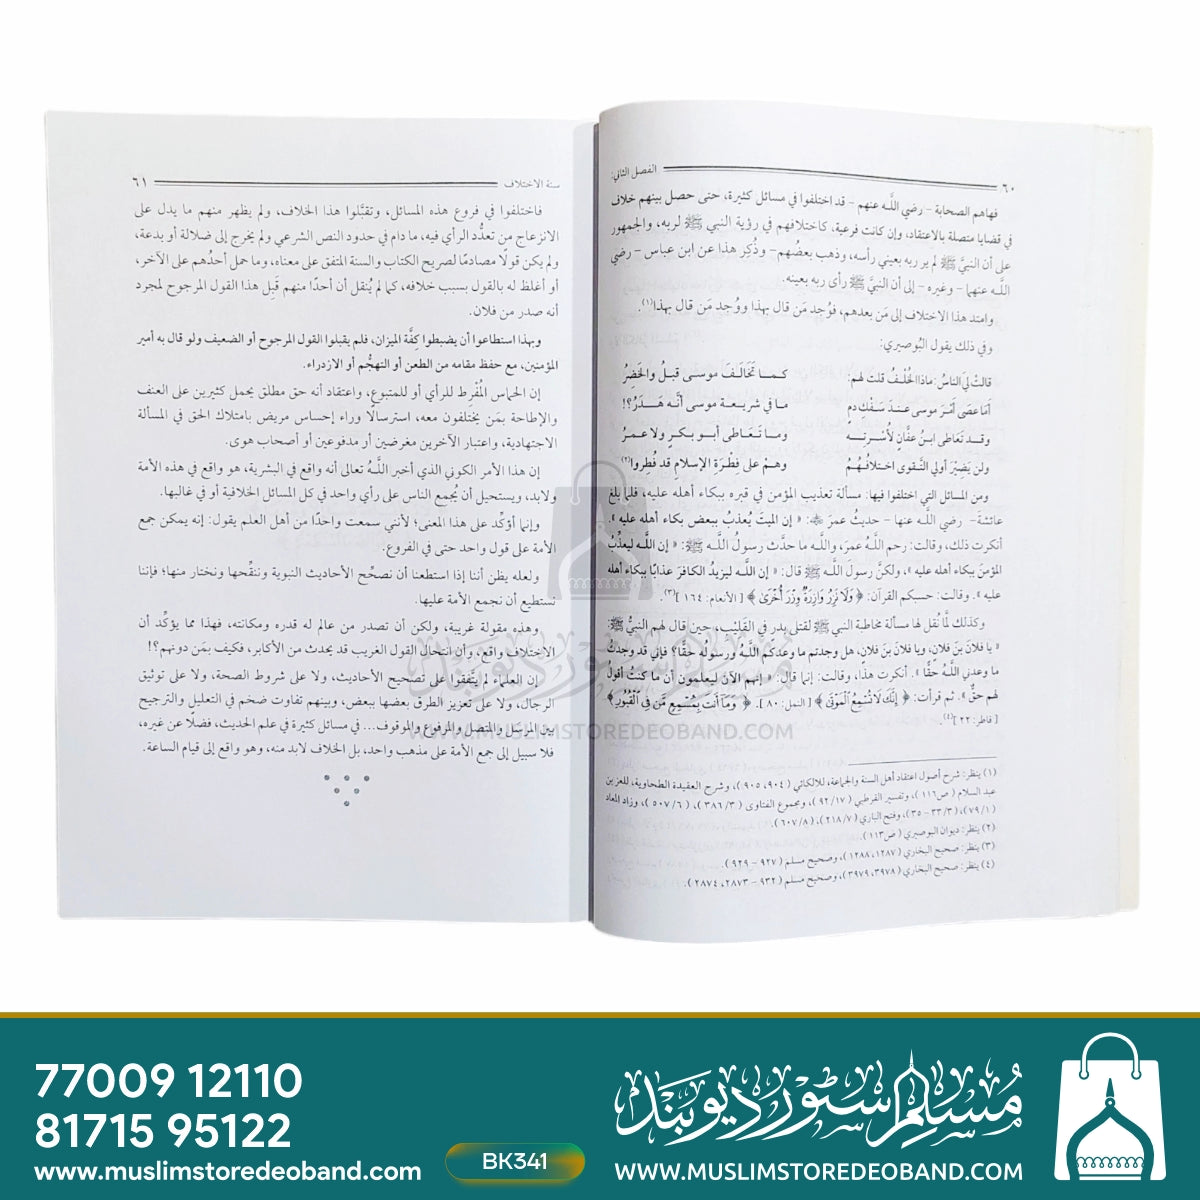 ٦٠ الفصل الثاني:
فهاهم الصحابة - رضي اللَّه عنهم - قد اختلفوا في مسائل كثيرة، حتى حصل بينهم خلاف
في قضايا متصلة بالاعتقاد، وإن كانت فرعية، كاختلافهم في رؤية النبي ﷺ لربه، والجمهور
على أن النبيَّ ﷺ لم ير ربه بعيني رأسه، وذهب بعضُهم - وذُكِر هذا عن ابن عباس - رضي
اللَّه عنهما - وغيره - إلى أن النبيَّ ﷺ رأى ربه بعينه.
وامتد هذا الاختلاف إلى مَن بعدهم، فوُجد مَن قال بهذا ووُجد مَن قال بهذا(١).
وفي ذلك يقول البُوصيري:
قالتْ ليَ الناسُ: ماذا الخُلْفُ قلت لهم: كـمـا تَخَالَـفَ موسـى قبـلُ والخَضِرُ
أمَا عصَى أمْرَ موسى عنـدَ سَـفْكِ دمٍ ما في شريعـة موسى أنَّـه هَـدَرُ؟!
وقـد تَعاطى ابنُ عفَّان لأُسْـرتـهِ ومـا تَـعَـاطى أبـو بـكـرٍ ولا عـمـرُ
ولن يَضِيْرَ أولي التَّقوى اختـلافُـهُـمُ وهـمْ على فِطـرَةِ الإسـلامِ قد فُطِروا(٢)
ومن المسائل التي اختلفوا فيها: مسألة تعذيب المؤمن في قبره ببكاء أهله عليه، فلمَّا بلغ
عائشة- رضي اللَّه عنها - حديثُ عمرَ ﵁: « إن الميتَ يُعذبُ ببعض بكاء أهله عليه ».
أنكرت ذلك، وقالت: رحم اللَّهُ عمرَ، واللَّه ما حدَّث رسولُ اللَّه ﷺ: « إن اللَّه ليعذِّبُ
المؤمنَ ببكاء أهله عليه »، ولكنَّ رسولَ اللَّه ﷺ قال: « إن اللَّه ليزيدُ الكافرَ عذابًا ببكاء أهله
عليه ». وقالت: حسبكم القرآن: ﴿ وَلَا نَزِرُ وَازِرَةٌ وِزْرَ أُخْرَىٰ ﴾ [ الأنعام: ١٦٤ ](٣).
وكذلك لمَّا نُقل لها مسألة مخاطبة النبي ﷺ لقتلى بدرٍ في القَلِيْب، حين قال لهم النبيُّ:
« يا فلانَ بنَ فلانٍ، ويا فلانَ بنَ فلانٍ، هل وجدتم ما وعدكم اللَّهُ ورسولُه حقًّا؟ فإني قد وجدتُ
ما وعدني اللَّهُ حقًّا ». أنكرت هذا، وقالت: إنما قال: « إنهم الآن ليعلمون أن ما كنتُ أقول
لهم حقٌّ ». ثم قرأت: ﴿ إِنَّكَ لَا تُسْمِعُ الْمَوْتَىٰ ﴾ [ النمل: ٨٠ ]. ﴿ وَمَا أَنتَ بِمُسْمِعٍ مَّن فِي الْقُبُورِ ﴾
[ فاطر: ٢٢ ](٤).
(١) ينظر: شرح أصول اعتقاد أهل السنة والجماعة، للالكائي (٩٠٤، ٩٠٥)، وشرح العقيدة الطحاوية، للعز بن
عبد السلام ( ص١١٦ )، وتفسير القرطبي ( ٩٢/١٧ )، ومجموع الفتاوى ( ٣٨٦/٣ )، ( ٥٠٧/٦ )، وزاد المعاد
( ٧٩/١ )، ( ٣٣/٣ - ٣٥ )، وفتح الباري ( ٢١٨/٧ )، ( ٦٠٧/٨ ).
(٢) ينظر: ديوان البوصيري ( ص١١٣ ).
(٣) ينظر: صحيح البخاري ( ١٢٨٧، ١٢٨٨ )، وصحيح مسلم ( ٩٢٧ - ٩٢٩ ).
(٤) ينظر: صحيح البخاري ( ٣٩٧٨، ٣٩٧٩ )، وصحيح مسلم ( ٩٣٢ - ٢٨٧٣، ٢٨٧٤ ).
سنة الاختلاف ٦١
فاختلفوا في فروع هذه المسائل، وتقبَّلوا هذا الخلاف، ولم يظهر منهم ما يدل على
الانزعاج من تعدُّد الرأي فيه، ما دام في حدود النص الشرعي ولم يخرج إلى ضلالة أو بدعة،
ولم يكن قولًا مصادمًا لصريح الكتاب والسنة المتفق على معناه، وما حمل أحدُهم على الآخر،
أو أغلظ له بالقول بسبب خلافه، كما لم يُنقل أن أحدًا منهم قَبِل هذا القول المرجوح لمجرد
أنه صدر من فلان.
وبهذا استطاعوا أن يضبطوا كِفَّة الميزان، فلم يقبلوا القول المرجوح أو الضعيف ولو قال به أمير
المؤمنين، مع حفظ مقامه من الطعن أو التهجُّم أو الازدراء.
إن الحماس المُفْرِط للرأي أو للمتبوع، واعتقاد أنه حق مطلق يحمل كثيرين على العنف
والإطاحة بمَن يختلفون معه، استرسالًا وراء إحساس مريض بامتلاك الحق في المسألة
الاجتهادية، واعتبار الآخرين مغرضين أو مدفوعين أو أصحاب هوى.
إن هذا الأمر الكوني الذي أخبر اللَّهُ تعالى أنه واقع في البشرية، هو واقع في هذه الأمة
ولابد، ويستحيل أن يُجمِع الناس على رأي واحد في كل المسائل الخلافية أو في غالبها.
وإنما أؤكِّد على هذا المعنى؛ لأنني سمعت واحدًا من أهل العلم يقول: إنه يمكن جمع
الأمة على قول واحد حتى في الفروع.
ولعله يظن أننا إذا استطعنا أن نصحِّح الأحاديث النبوية وننقِّحها ونختار منها؛ فإننا
نستطيع أن نجمع الأمة عليها.
وهذه مقولة غريبة، ولكن أن تصدر من عالم له قدره ومكانته، فهذا مما يؤكِّد أن
الاختلاف واقع، وأن انتحال القول الغريب قد يحدث من الأكابر، فكيف بمَن دونهم؟!
إن العلماء لم يتَّفقوا على تصحيح الأحاديث، ولا على شروط الصحة، ولا على توثيق
الرجال، ولا على تعزيز الطرق بعضها ببعض، وبينهم تفاوت ضخم في التعليل والترجيح
بين المرسَل والمتصل والمرفوع والموقوف... في مسائل كثيرة في علم الحديث، فضلًا عن غيره،
فلا سبيل إلى جمع الأمة على مذهب واحد، بل الخلاف لابد منه، وهو واقع إلى قيام الساعة.
مسلم سٹور دیوبند
WWW.MUSLIMSTOREDEOBAND.COM
77009 12110
81715 95122
www.muslimstoredeoband.com
BK341
مسلم سٹور دیوبند
WWW.MUSLIMSTOREDEOBAND.COM